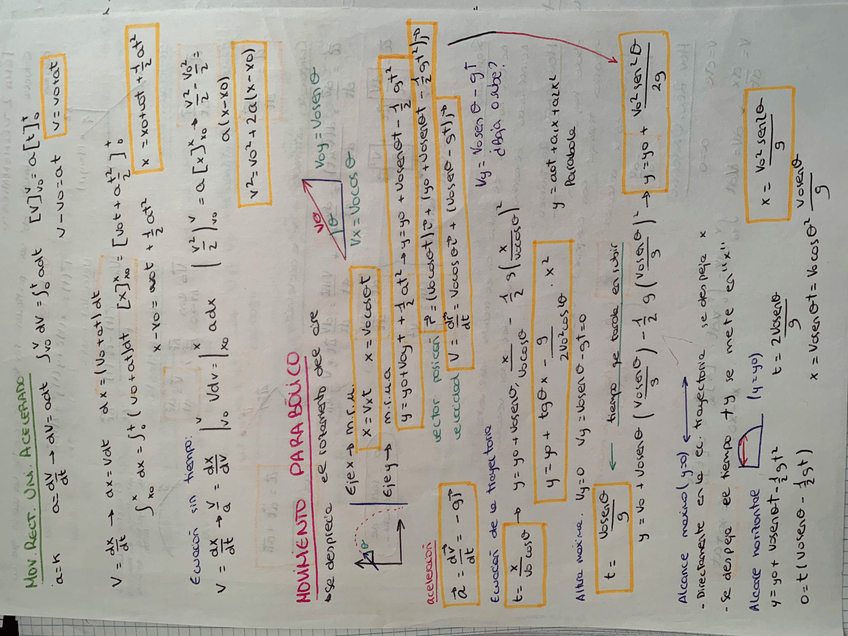 MOV. RECT. UNI. ACELERADO
a=k a=dv/dt → dv=adt ∫v0^v dv=∫0^t adt [v]v0^v = a[t]0^t
v-v0=at v=v0+at
v=dx/dt → dx=vdt dx=(v0+at)dt
∫x0^x dx=∫0^t (v0+at)dt [x]x0^x=[v0t+a t²/2]0^t
x-x0=v0t+½at² x=x0+v0t+½at²
Ecuación sin tiempo:
v=dx/dt → v/a=dx/dv ∫v0^v vdv=∫x0^x adx (v²/2)v0^v=a[x]x0^x → v²/2-v0²/2=
a(x-x0)
v²=v0²+2a(x-x0)
MOVIMIENTO PARABÓLICO
se desprecia el rozamiento del aire
v0 θ v0y=v0senθ
vx=v0cosθ
θ
Eje x → m.r.u.
x=vxt x=v0cosθt
Eje y → m.r.u.a
y=y0+v0yt+½at² → y=y0+v0senθt-½gt²
vector posición r=(v0cosθt)i+(y0+v0senθt-½gt²)j
velocidad v=dr/dt=v0cosθi+(v0senθ-gt)j
aceleración
a=dv/dt=-gj
vy=v0senθ-gt
¿Baja o sube?
Ecuación de la trayectoria
t=x/v0cosθ → y=y0+v0senθ x/v0cosθ-½g(x/v0cosθ)²
y=y0+tgθx-g/2v0²cosθ·x²
y=a0t+a1x+a2x²
Parabola
Altura máxima vy=0 vy=v0senθ-gt=0
t=v0senθ/g ← tiempo que tarda en subir
y=y0+v0senθ(v0senθ/g)-½g(v0senθ/g)² → y=y0+v0²sen²θ/2g
Alcance máximo (y=0)
- Directamente en la ec. trayectoria se despeja x
- Se despeja el tiempo t y se mete en "x"
Alcance horizontal (y=y0)
y=y0+v0senθt-½gt²
0=t(v0senθ-½gt) t=2v0senθ/g
x=v0²sen2θ/g
x=v0senθt=v0cosθ2 v0senθ/g